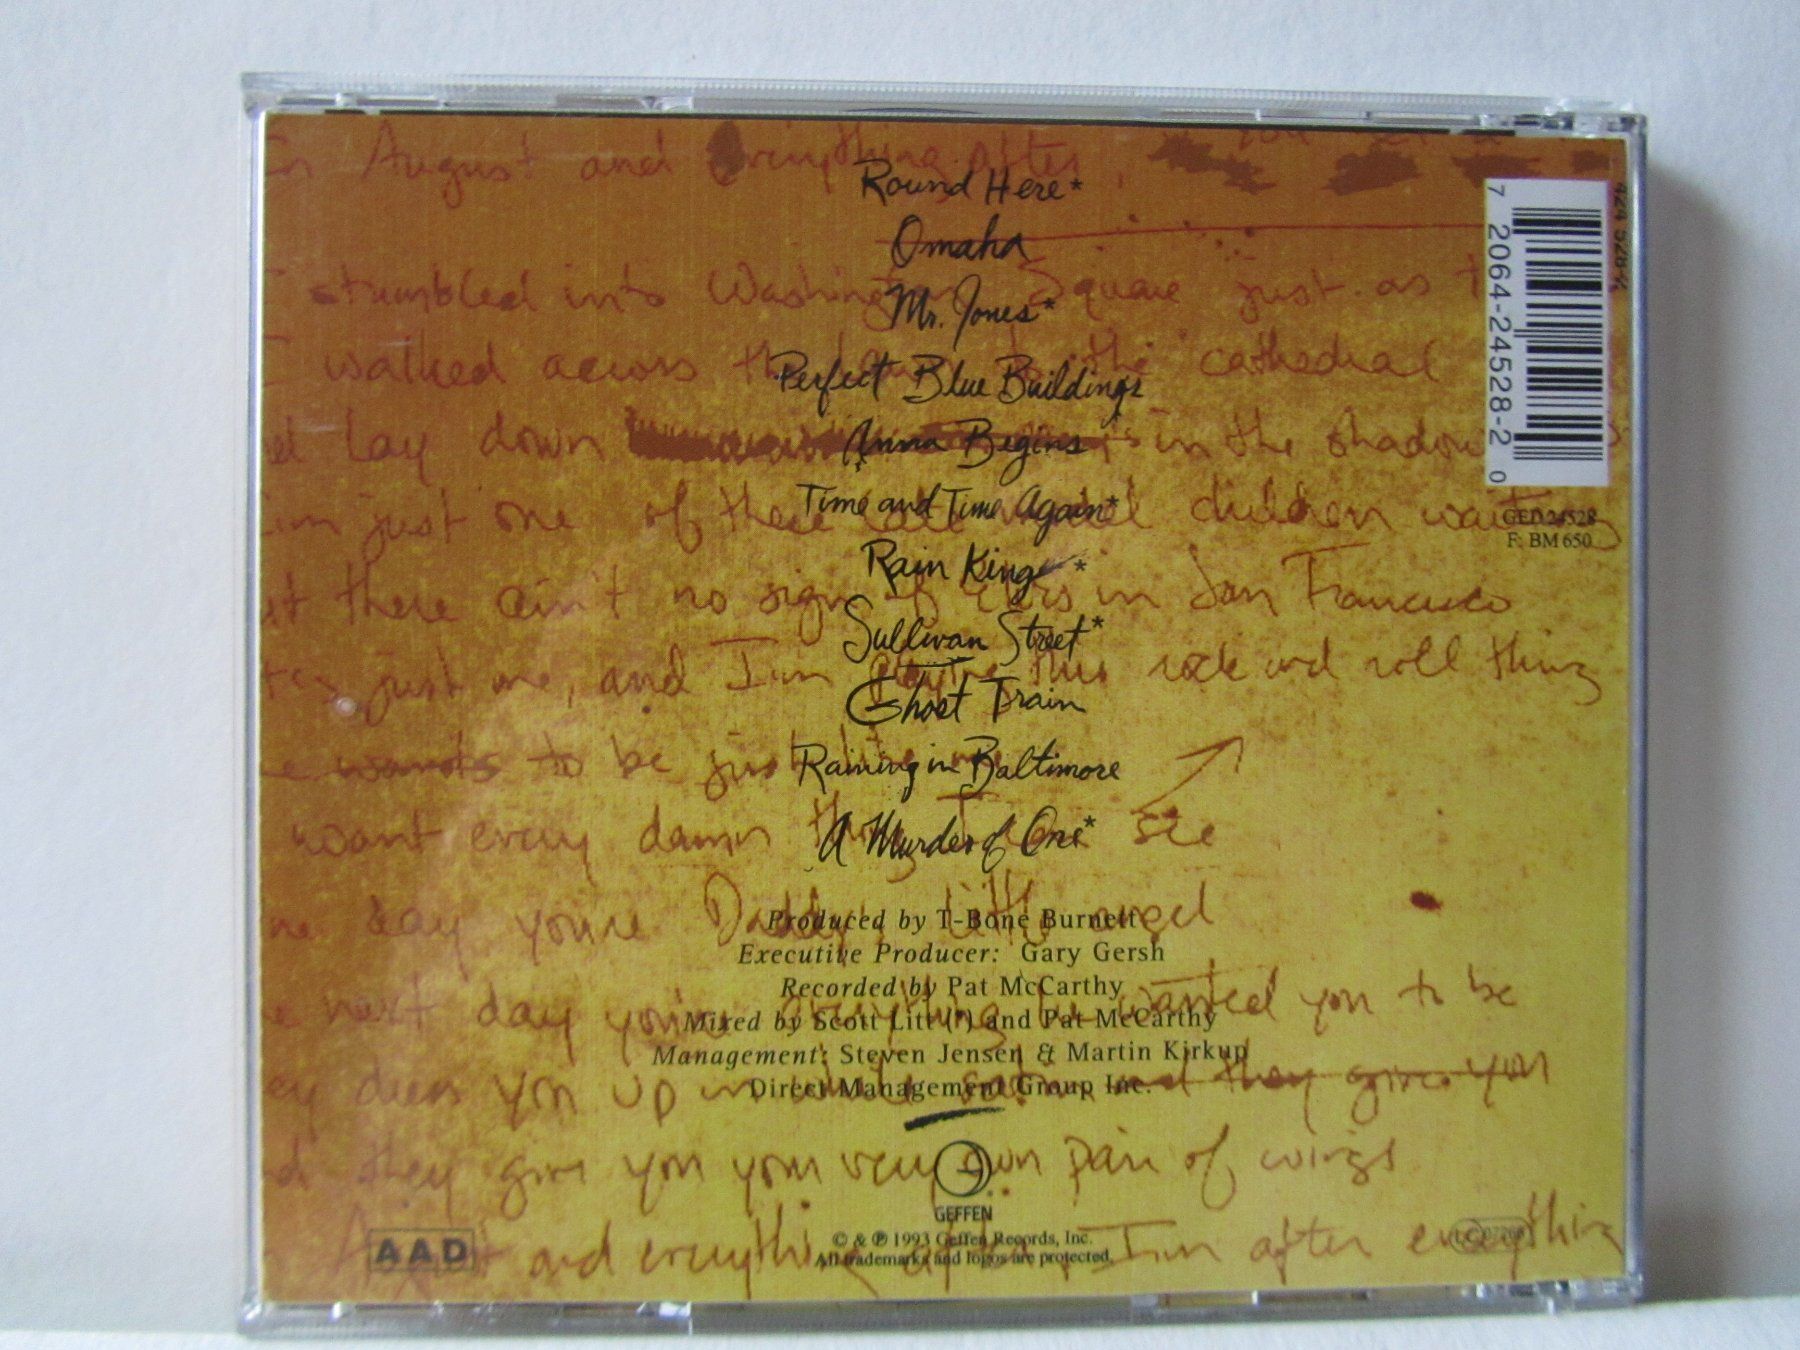 August and everything after,
Round Here*
Omaha
stumbled into Washington Square just as
Mr. Jones*
I walked across the cathedral
Perfect Blue Buildings
lay down in the shadow
Anna Begins
just one of these children waiting
Time and Time Again*
Rain King*
there ain't no sign of in San Francisco
Sullivan Street*
just me, and I'm this rock and roll thing
Ghost Train
wants to be just
Raining in Baltimore
want every damn thing I see
A Murder of One*
day you're Daddy's little angel
Produced by T-Bone Burnett
Executive Producer: Gary Gersh
Recorded by Pat McCarthy
next day you're everything he wanted you to be
Mixed by Scott Litt (*) and Pat McCarthy
Management: Steven Jensen & Martin Kirkup
dress you up in and they give you
Direct Management Group Inc.
they give you your very own pair of wings
GEFFEN
August and everything after, I'm after everything
© & ℗ 1993 Geffen Records, Inc.
All trademarks and logos are protected.
AAD
7 2064-24528-2 0
424 528-2
GED 24528
F: BM 650